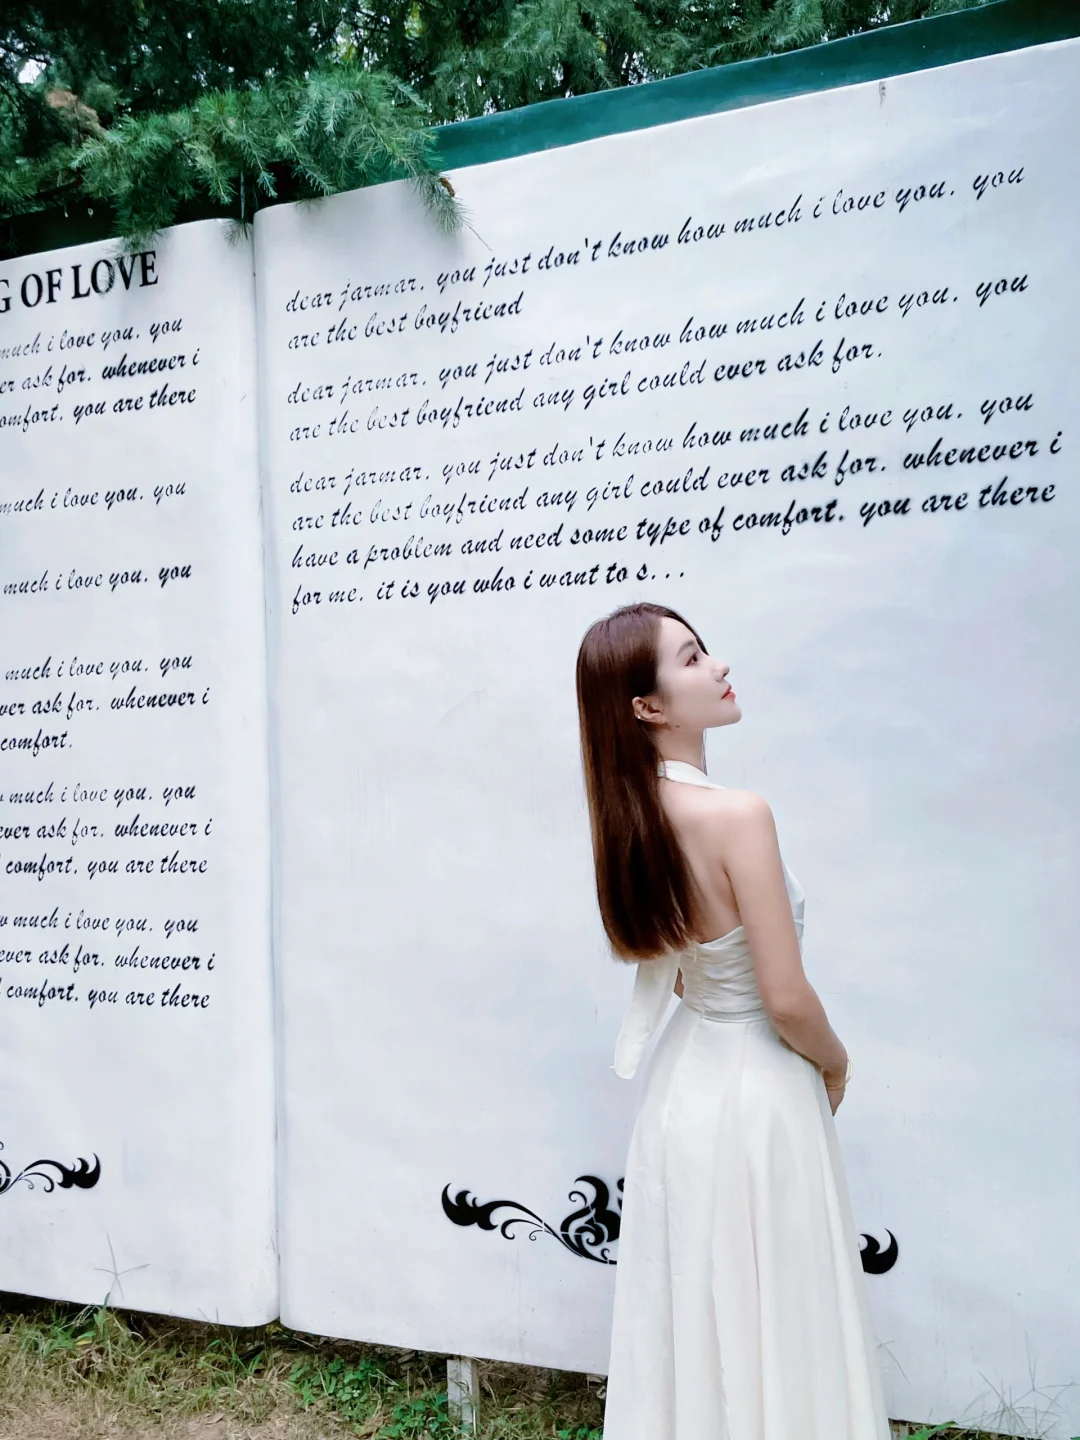 G OF LOVE
much i love you. you
er ask for. whenever i
omfort. you are there
much i love you. you
much i love you. you
much i love you. you
ver ask for. whenever i
comfort.
w much i love you. you
ever ask for. whenever i
comfort. you are there
w much i love you. you
ever ask for. whenever i
comfort. you are there
dear jarmar. you just don't know how much i love you. you
are the best boyfriend
dear jarmar. you just don't know how much i love you. you
are the best boyfriend any girl could ever ask for.
dear jarmar. you just don't know how much i love you. you
are the best boyfriend any girl could ever ask for. whenever i
have a problem and need some type of comfort. you are there
for me. it is you who i want to s...